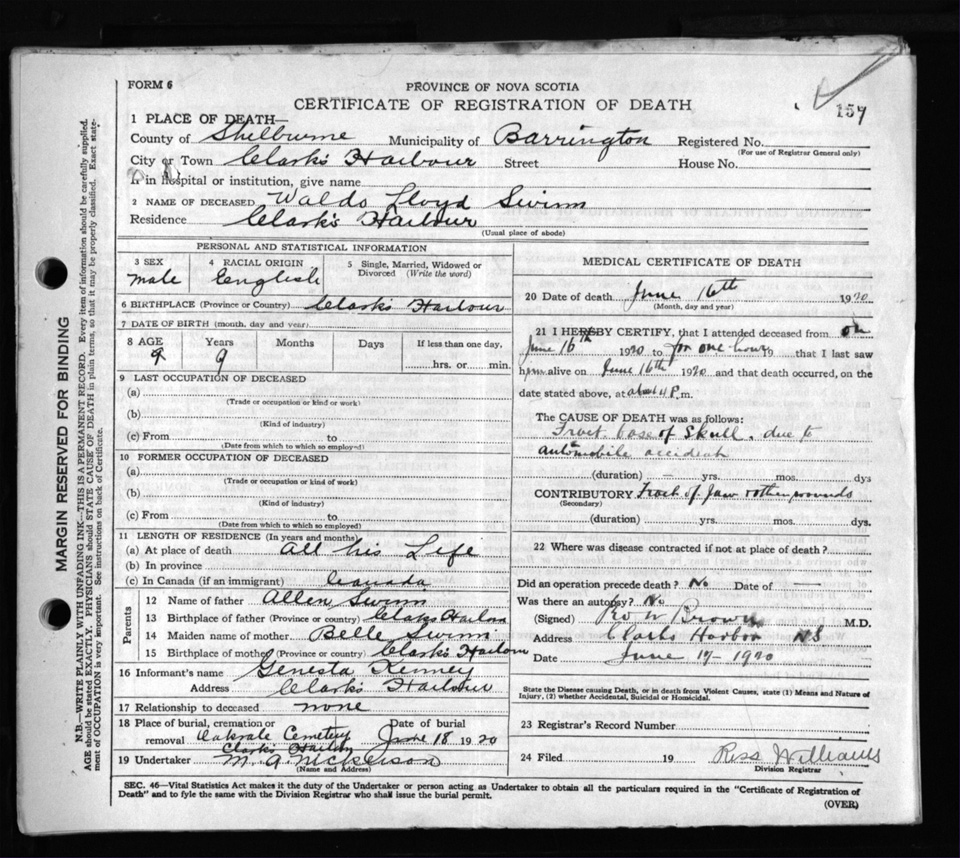 FORM 6
PROVINCE OF NOVA SCOTIA
CERTIFICATE OF REGISTRATION OF DEATH
157
1 PLACE OF DEATH—
County of Shelburne Municipality of Barrington Registered No.
(For use of Registrar General only)
City or Town Clark's Harbour Street House No.
If in hospital or institution, give name
2 NAME OF DECEASED Waldo Lloyd Swim
Residence Clark's Harbour
(Usual place of abode)
PERSONAL AND STATISTICAL INFORMATION
3 SEX
male
4 RACIAL ORIGIN
English
5 Single, Married, Widowed or
Divorced (Write the word)
6 BIRTHPLACE (Province or Country) Clark's Harbour
7 DATE OF BIRTH (month, day and year)
8 AGE Years Months Days If less than one day,
9 9 hrs. or min.
9 LAST OCCUPATION OF DECEASED
(a)
(Trade or occupation or kind or work)
(b)
(Kind of industry)
(c) From to
(Date from which to which so employed)
10 FORMER OCCUPATION OF DECEASED
(a)
(Trade or occupation or kind of work)
(b)
(Kind of industry)
(c) From to
(Date from which to which so employed)
11 LENGTH OF RESIDENCE (In years and months)
(a) At place of death All his Life
(b) In province
(c) In Canada (if an immigrant) Canada
Parents
12 Name of father Allen Swim
13 Birthplace of father (Province or country) Clark's Harbour
14 Maiden name of mother Belle Swim
15 Birthplace of mother (Province or country) Clark's Harbour
16 Informant's name Genesta Kenney
Address Clark's Harbour
17 Relationship to deceased none
18 Place of burial, cremation or Date of burial
removal Oakvale Cemetery June 18 1920
Clarks Harbour
19 Undertaker M. A. Nickerson
(Name and Address)
MEDICAL CERTIFICATE OF DEATH
20 Date of death June 16th 1920
(Month, day and year)
21 I HEREBY CERTIFY, that I attended deceased from on
June 16th 1920 to for one hour 19 that I last saw
him alive on June 16th 1920 and that death occurred, on the
date stated above, at about 4 P.m.
The CAUSE OF DEATH was as follows:
Fract. base of Skull. due to
automobile accident
(duration) — yrs. mos. dys
CONTRIBUTORY Fract. of Jaw & other wounds
(Secondary)
(duration) yrs. mos. dys.
22 Where was disease contracted if not at place of death?
Did an operation precede death? No Date of —
Was there an autopsy? No
(Signed) Brown M.D.
Address Clarks Harbor NS
Date June 17 - 1920
State the Disease causing Death, or in death from Violent Causes, state (1) Means and Nature of
Injury, (2) whether Accidental, Suicidal or Homicidal.
23 Registrar's Record Number
24 Filed 19 Ross Williams
Division Registrar
SEC. 46—Vital Statistics Act makes it the duty of the Undertaker or person acting as Undertaker to obtain all the particulars required in the "Certificate of Registration of
Death" and to fyle the same with the Division Registrar who shall issue the burial permit.
(OVER)
MARGIN RESERVED FOR BINDING
N.B.—WRITE PLAINLY WITH UNFADING INK—THIS IS A PERMANENT RECORD. Every item of information should be carefully supplied.
AGE should be stated EXACTLY. PHYSICIANS should STATE CAUSE OF DEATH in plain terms, so that it may be properly classified. Exact state-
ment of OCCUPATION is very important. See instructions on back of Certificate.